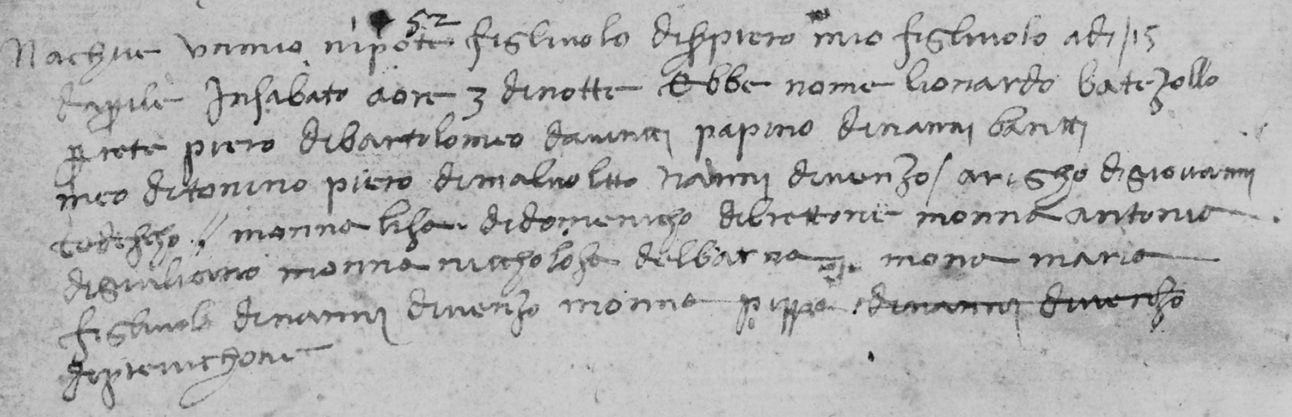 52
Nachue un mio nipote figliuolo di ser piero mio figliuolo adi / 15
daprile in sabato a ore 3 di notte Ebbe nome lionardo batezollo
prete piero di bartolomeo da uinci papino di nanni bantti
meo di tonino piero di maluoltto nanni di uenzo / arigho di giouanni
tedescho / monna lisa di domenicho di brettone monna antonia
di giuliano monna niccholosa del barna mona maria
figliuola di nanni di uenzo monna pippa di nanni di uenzo
di preuichone